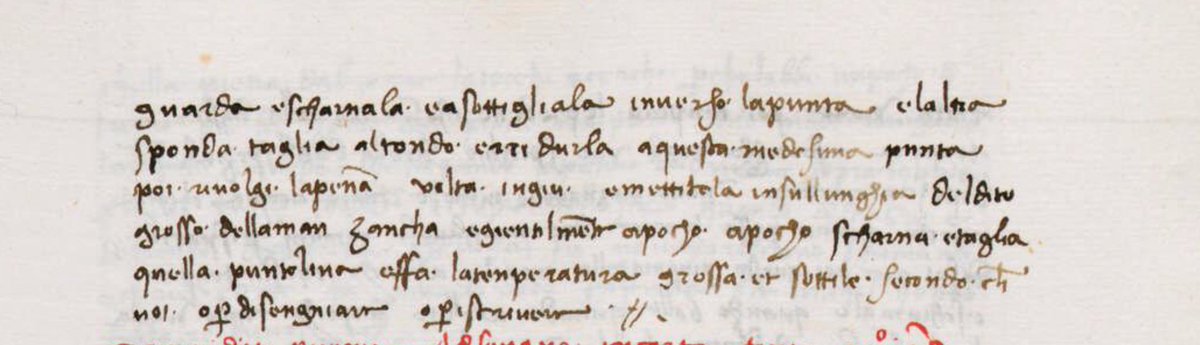 guarda escharnala · easottigliala inverso · lapunta elaltra
sponda · taglia altondo · erriducila aquesta · medesima punta
poi · rivolgi · lapēna volta · ingiu · emettitela insullunghia deldito
grosso · dellaman zancha egientilmēte apocho · apocho scharna · etaglia
quella · puntolina effa · latenperatura grossa · et sottile · secondo · ch̄
voi · op̱ disengniare op̱ iscrivere · //